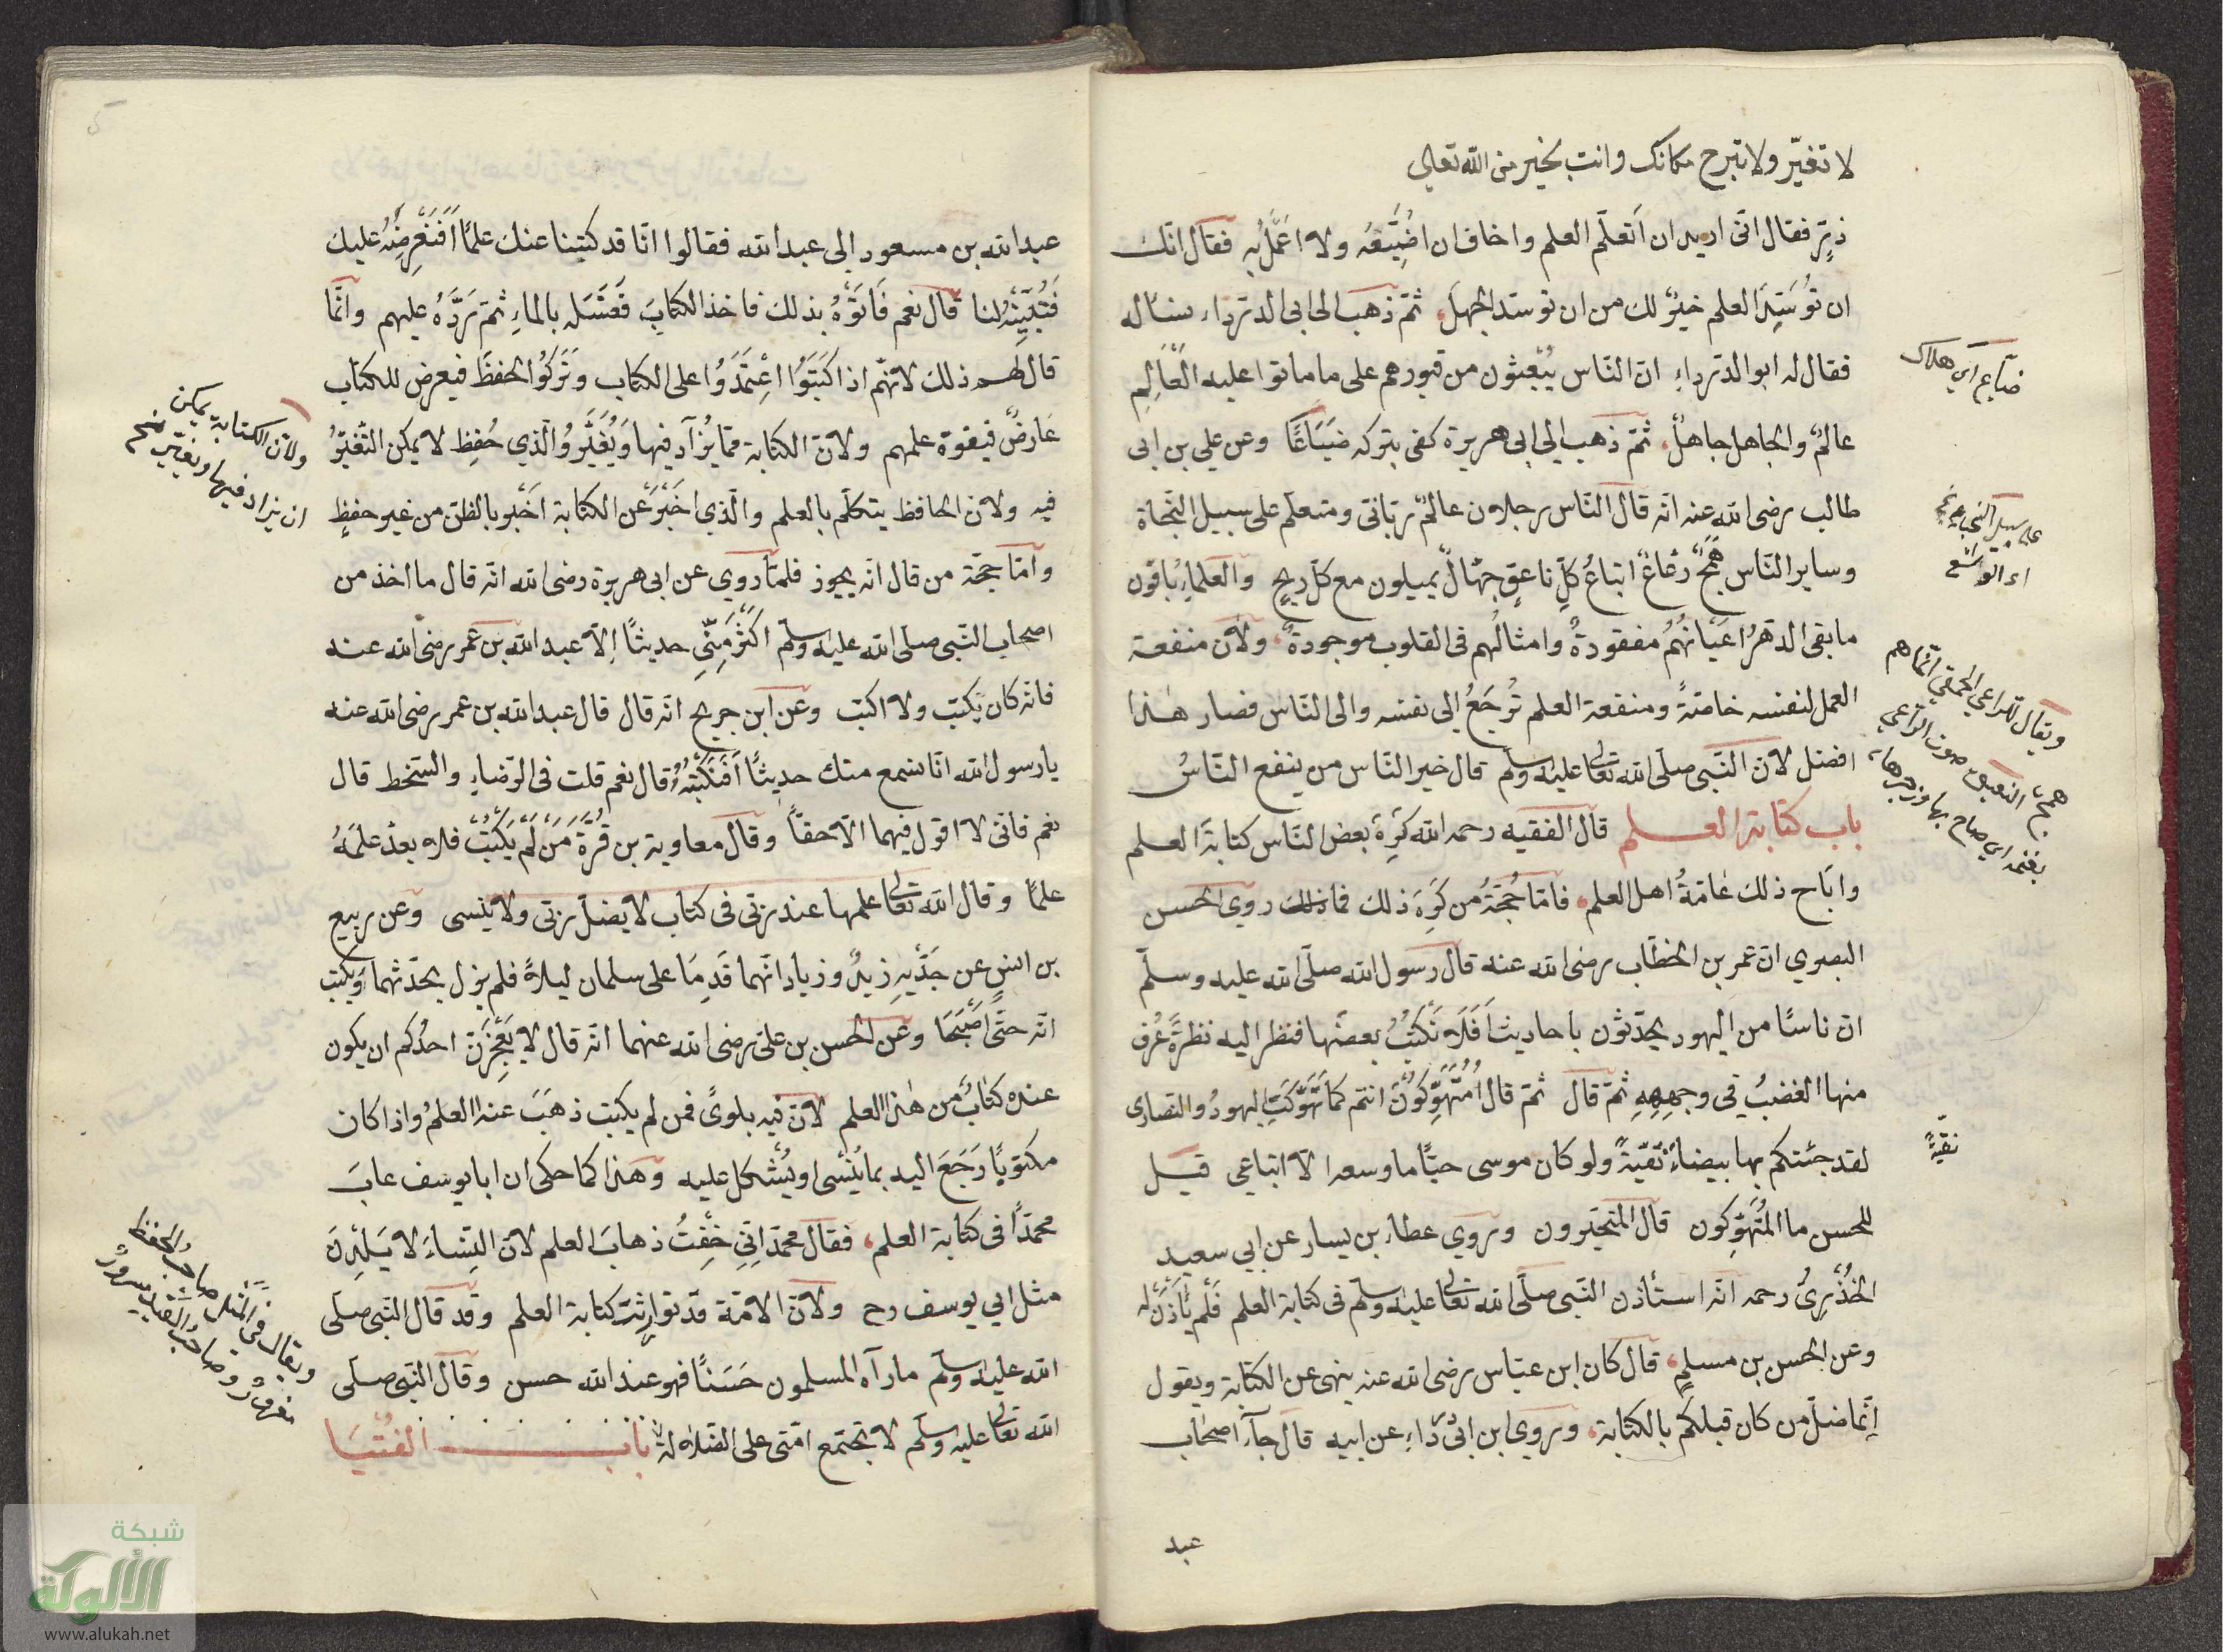 لا تغيّر ولا تبرح مكانك وانت بخير من الله تعالى
ذرٍّ فقال انّى اريد ان اَتعلّم العلم واخاف ان اضُيّعَه ولا اعَمَلُ به فقال انّك
ان تُوَسَّدَ العلم خيرٌ لك من ان توسّد الجهلَ ثمّ ذهب الى ابى الدّرداء سأله
فقال له ابو الدّرداءِ انّ النّاس يُبْعثون من قبورهم على ما ماتوا عليه العَالِم
عالمٌ والجاهل جاهلٌ ثمّ ذهب الي ابى هريرة كفى بتركه ضَيَاعًا وعن علي بن ابى
طالب رضى الله عنه انّه قال النّاس رجلان عالمٌ ربّانى ومتعلّم على سبيل النّجاة
وساير النّاس هَمَجٌ رعَاعٌ اتباعُ كلّ ناعقٍ جهّالٌ يميلون مع كلّ ريحٍ والعلماءُ باقون
ما بقى الدّهرُ اعيَانهُمُ مفقودةٌ وامثالُهم فى القلوب موجودةٌ ولأن منفعة
العمل لنفسه خاصّةً ومنفعة العلم تُرجَعُ الي نفسه والى النّاس فصار هذا
افضل لانّ النّبى صلّى الله تعالى عليه وسلم قال خير النّاس من ينفع النّاسُ
باب كتابة العلم قال الفقيه رحمه الله كَرِهَ بعض النّاس كتابةَ العلم
واَبَاح ذلك عامّةُ اهل العلم فامّا حُجّةُ من كَرِهَ ذلك فما روي الحسن
البصرى انّ عمر بن الخطّاب رضى الله عنه قال رسول الله صلّى الله عليه وسلّم
انّ ناسًا من اليهود يحدّثون باحاديث اَفَلَا نَكْتبُ بعضَها فنظر اليه نظرةً عُرف
منها الغضبُ فى وجههِ ثمّ قال ثمّ قال اَمُتَهَوِّكوُنَ انتم كما تَهَوّكَتِ اليهودُ والنصارى
لقد جئتكم بها بيضاءَ نقيّةً ولو كان موسى حيّا ما وسعه الا اتباعي قيل
للحسن ما المُتَهَوّكون قال المتحيّرون وروي عطاء بن يسار عن ابي سعيد
الخُدْرىُّ رحمه انّه استأذن النّبى صلّى الله تعالى عليه وسلم فى كتابة العلم فَلَم يَأْذَنْ له
وعن الحسن بن مسلمٍ قال كان ابن عبّاس رضى الله عنه ينهى عن الكتابة ويقول
اِنّما ضلّ من كان قبلكم بالكتابة وروي ابن ابى عن ابيه قال جآء اصحاب
عبد
ضياع اي هلاك
ويقال للراعي الحمقى انّما هم
همج النعيق صوت الراعي
بغنمه اي صاح بها وزجرها
نقيّةً
عبد الله بن مسعود الى عبد الله فقالوا انّا قد كتبنا عنك علمًا اَفَنَعْرِضُهُ عليك
فَتُبَيّنُهُ لنا قال نعم فَاَتَوْهُ بذلك فاخذ الكتابَ فَغَسَلَه بالماءِ ثمّ رَدَّهُ عليهم وانّما
قال لهم ذلك لانّهم اذا كَتَبَوُا اعِتمَدَوُا على الكتاب وَتَرَكوُا الحفظَ فيعرض للكتاب
عَارضٌ فيفوة علمهم ولانّ الكتابة ممّا يزُاد فيها وَيُغَيَّرُ والّذي حُفِظ لا يمكن التّغيّرُ
فيه ولانّ الحافظ يتكلّم بالعلم والّذي اَخْبَرَ عن الكتابة اَخْبر بالظنّ من غير حفظٍ
وامّا حجّة من قال انّه يجوز فلمّا روي عن ابى هريرة رضى الله انّه قال ما اخذ من
اصحاب النّبى صلّى الله عليه وسلم اكثرَ مِنّي حديثًا اِلّا عبد الله بن عمر رضى الله عنه
فانّه كان يكتب ولا اكتب وعن ابن جريح انّه قال قال عبد الله بن عمر رضى الله عنه
يا رسول الله انّا نسمع منك حديثًا اَفَنكْتبُهُ قال نعم قلت فى الرّضاءِ والسّخط قال
نعم فانّى لا اقول فيهما الّا حقًّا وقال معاوية بن قُرّةَ مَنْ لَمْ يَكْتُبْ فلا يعدّ علمَهُ
علمًا وقال الله تعالى علمها عند ربّى فى كتاب لا يضلّ ربّى ولا ينسى وعن ربيع
بن انسٍ عن جَدَّيهِ زيدٌ وزياد انّهما قَدِمَا على سلمان ليلاً فلم يزل يحدّثهما وَيكتب
انّه حتّى اَصْبَحَا وعن الحسن بن علىّ رضى الله عنهما انّه قال لا يَعْجِزَنّ احدُكم ان يكون
عنده كتابٌ من هذا العلم لانّ فيه بلوىً فمن لم يكتب ذهَبَ عنه العلمُ واذا كان
مكتوبًا رَجَعَ اليه بما يُنْسى او يُشْكل عليه وهذا كما حكى ان ابا يوسف عابَ
محمّدًا فى كتابة العلم فقال محمّد اِنّى خِفْتُ ذهابَ العلم لانّ النِساءَ لا يَلِدْنَ
مثل ابي يوسف رح ولانّ الامّة قد توارثتْ كتابة العلم وقد قال النّبى صلّى
الله عليه وسلم ما رآه المسلمون حَسَنًا فهو عند الله حسن وقال النّبى صلّى
الله تعالى عليه وسلم لا تجتمع امّتى على الضلالة باب الفُتْيَا
ولانّ الكتابة يمكن
ان يزاد فيها ويغيّر
ويقال فى المثل صاحب الحفظ
شبكة
الألوكة
www.alukah.net